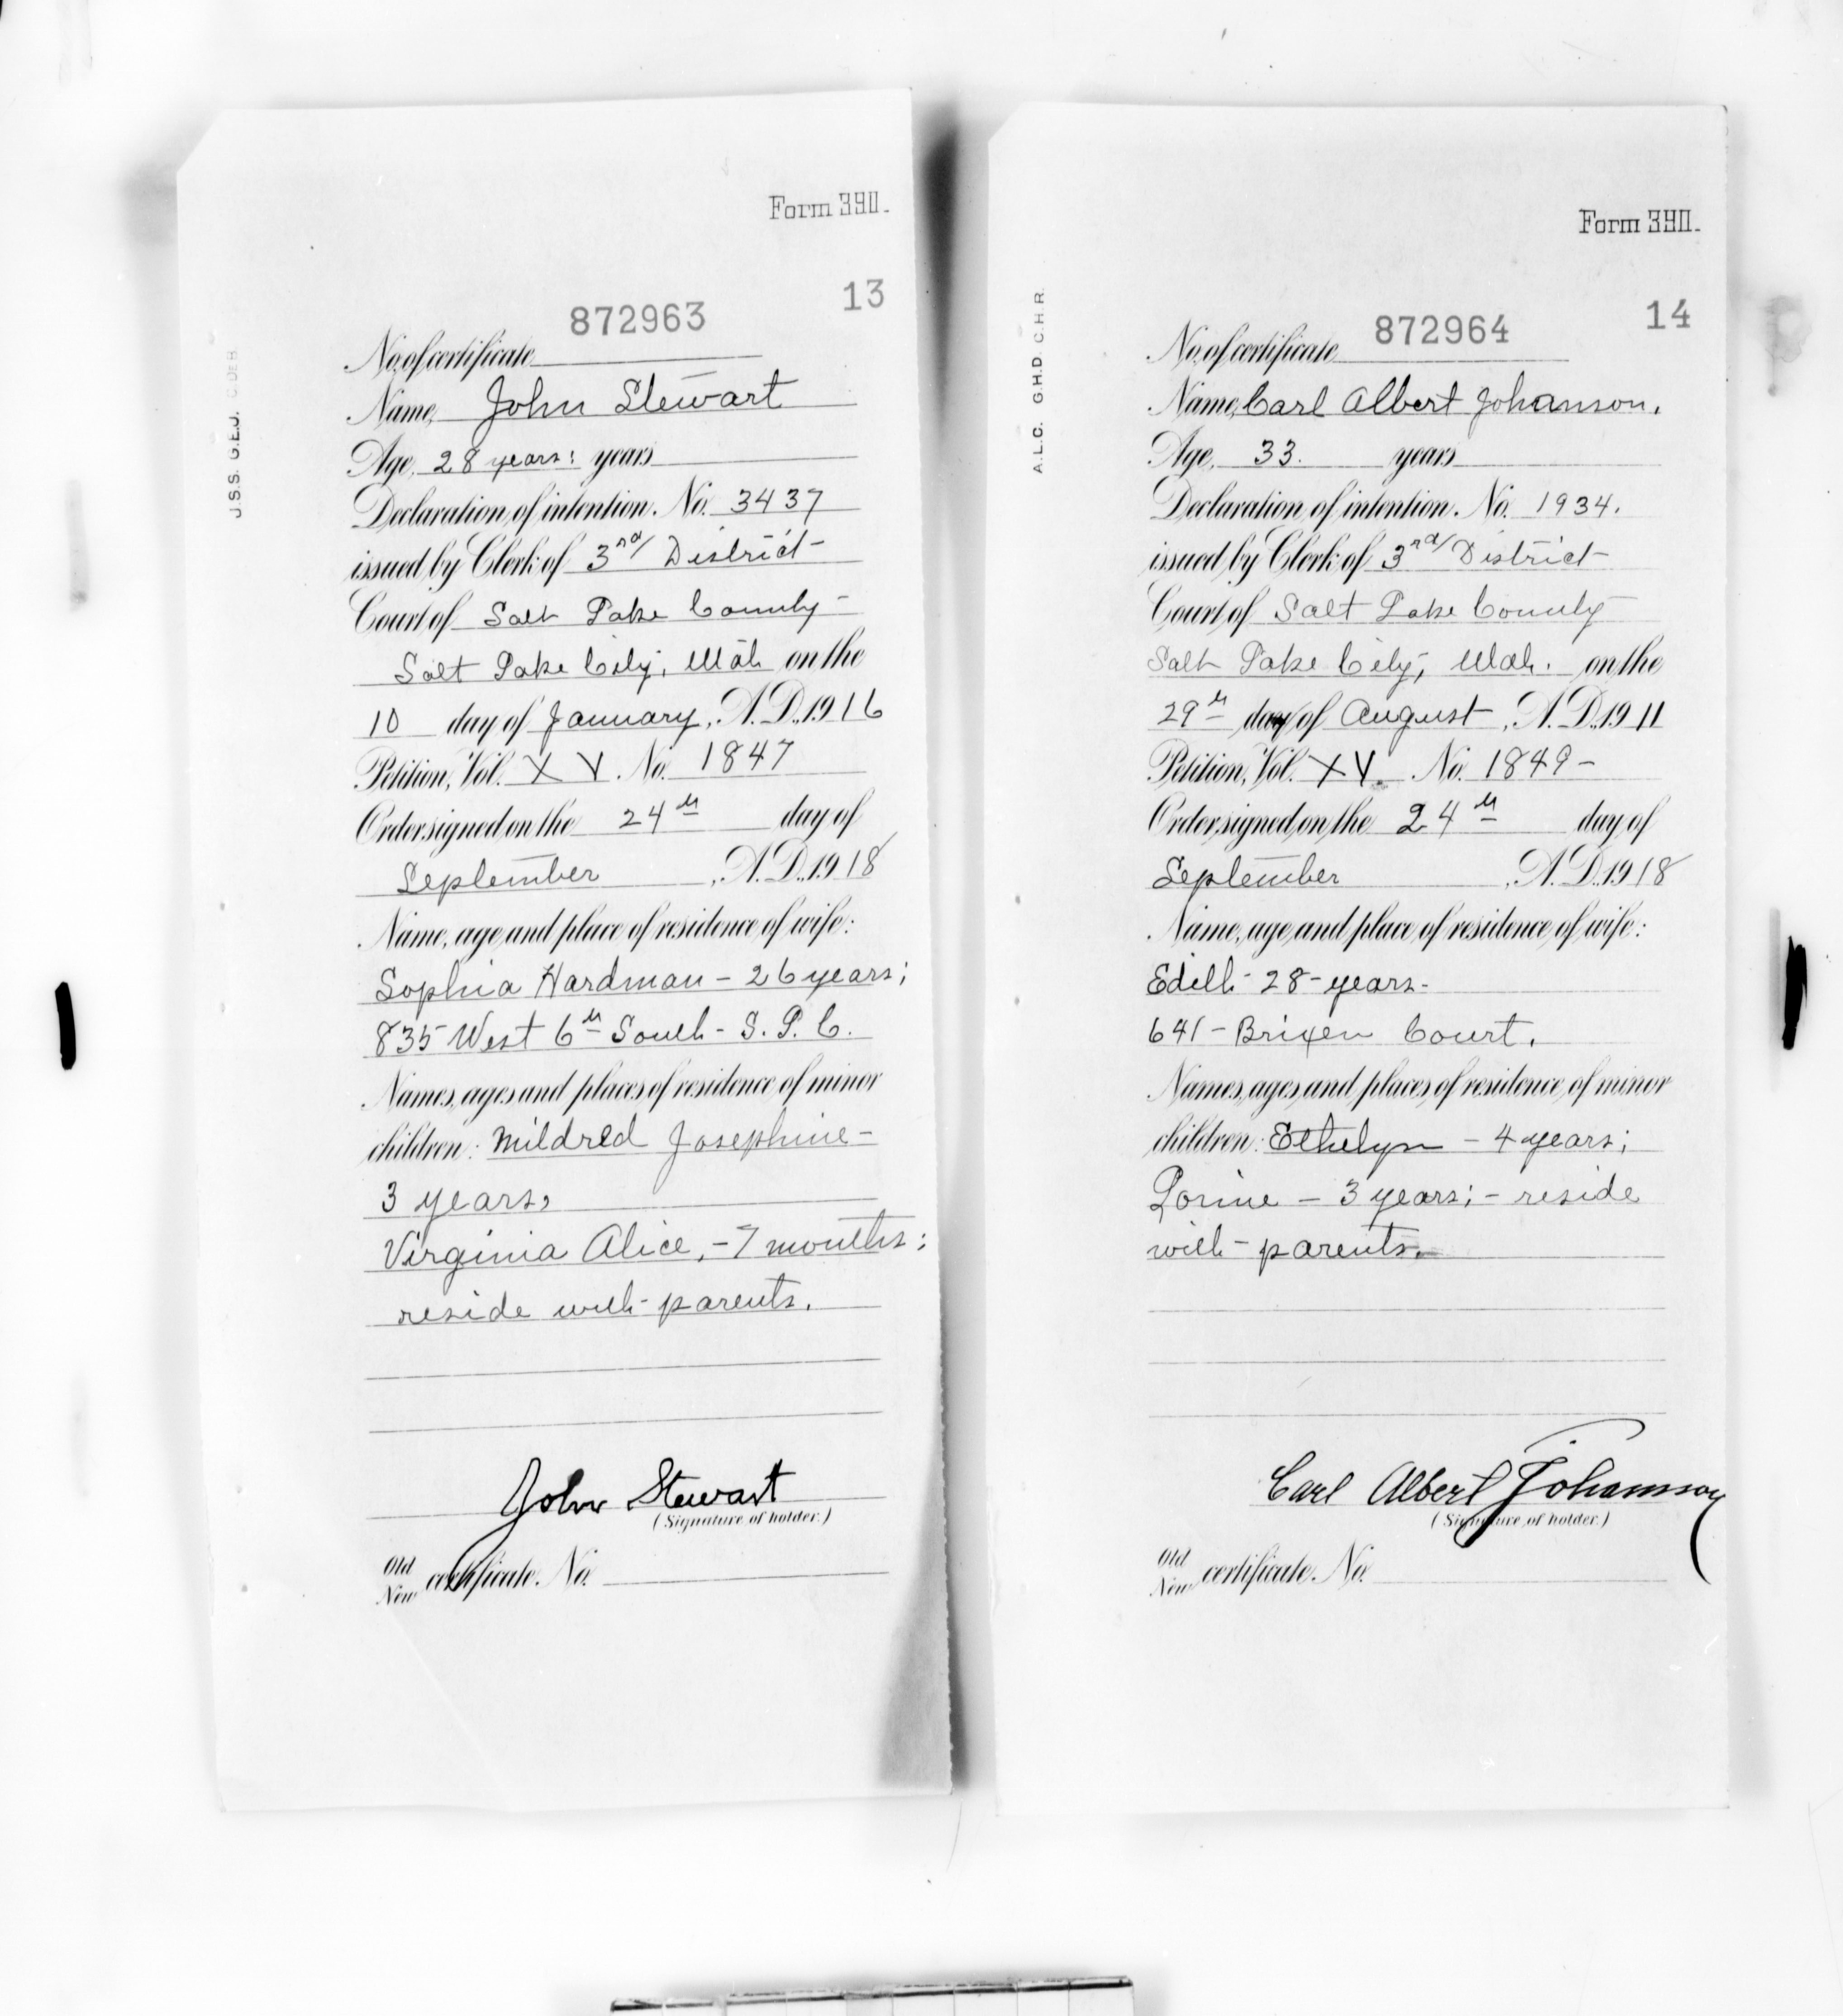 Form 390.
13
872963
No. of certificate
Name, John Stewart
Age, 28 years; years
Declaration of intention. No. 3437
issued by Clerk of 3rd District
Court of Salt Lake County
Salt Lake City, Utah on the
10 day of January, A. D., 1916
Petition, Vol. XV. No. 1847
Order signed on the 24th day of
September, A. D., 1918
Name, age and place of residence of wife:
Sophia Hardman - 26 years;
835 West 6th South - S. L. C.
Names, ages and places of residence of minor
children: Mildred Josephine -
3 years,
Virginia Alice, - 7 months;
reside with parents.
John Stewart
(Signature of holder.)
Old
New certificate. No.
J.S.S. G.E.J.
Form 390.
14
872964
No. of certificate
Name, Carl Albert Johanson.
Age, 33. years
Declaration of intention. No. 1934.
issued by Clerk of 3rd District
Court of Salt Lake County
Salt Lake City, Utah. on the
29th day of August, A. D., 1911
Petition, Vol. XV. No. 1849 -
Order signed on the 24th day of
September, A. D., 1918
Name, age and place of residence of wife:
Edith - 28 - years -
641 - Brixen Court.
Names, ages and places of residence of minor
children: Ethelyn - 4 years;
Lorine - 3 years; - reside
with parents.
Carl Albert Johansson
(Signature of holder.)
Old
New certificate. No.
A.L.C. G.H.D. C.H.R.